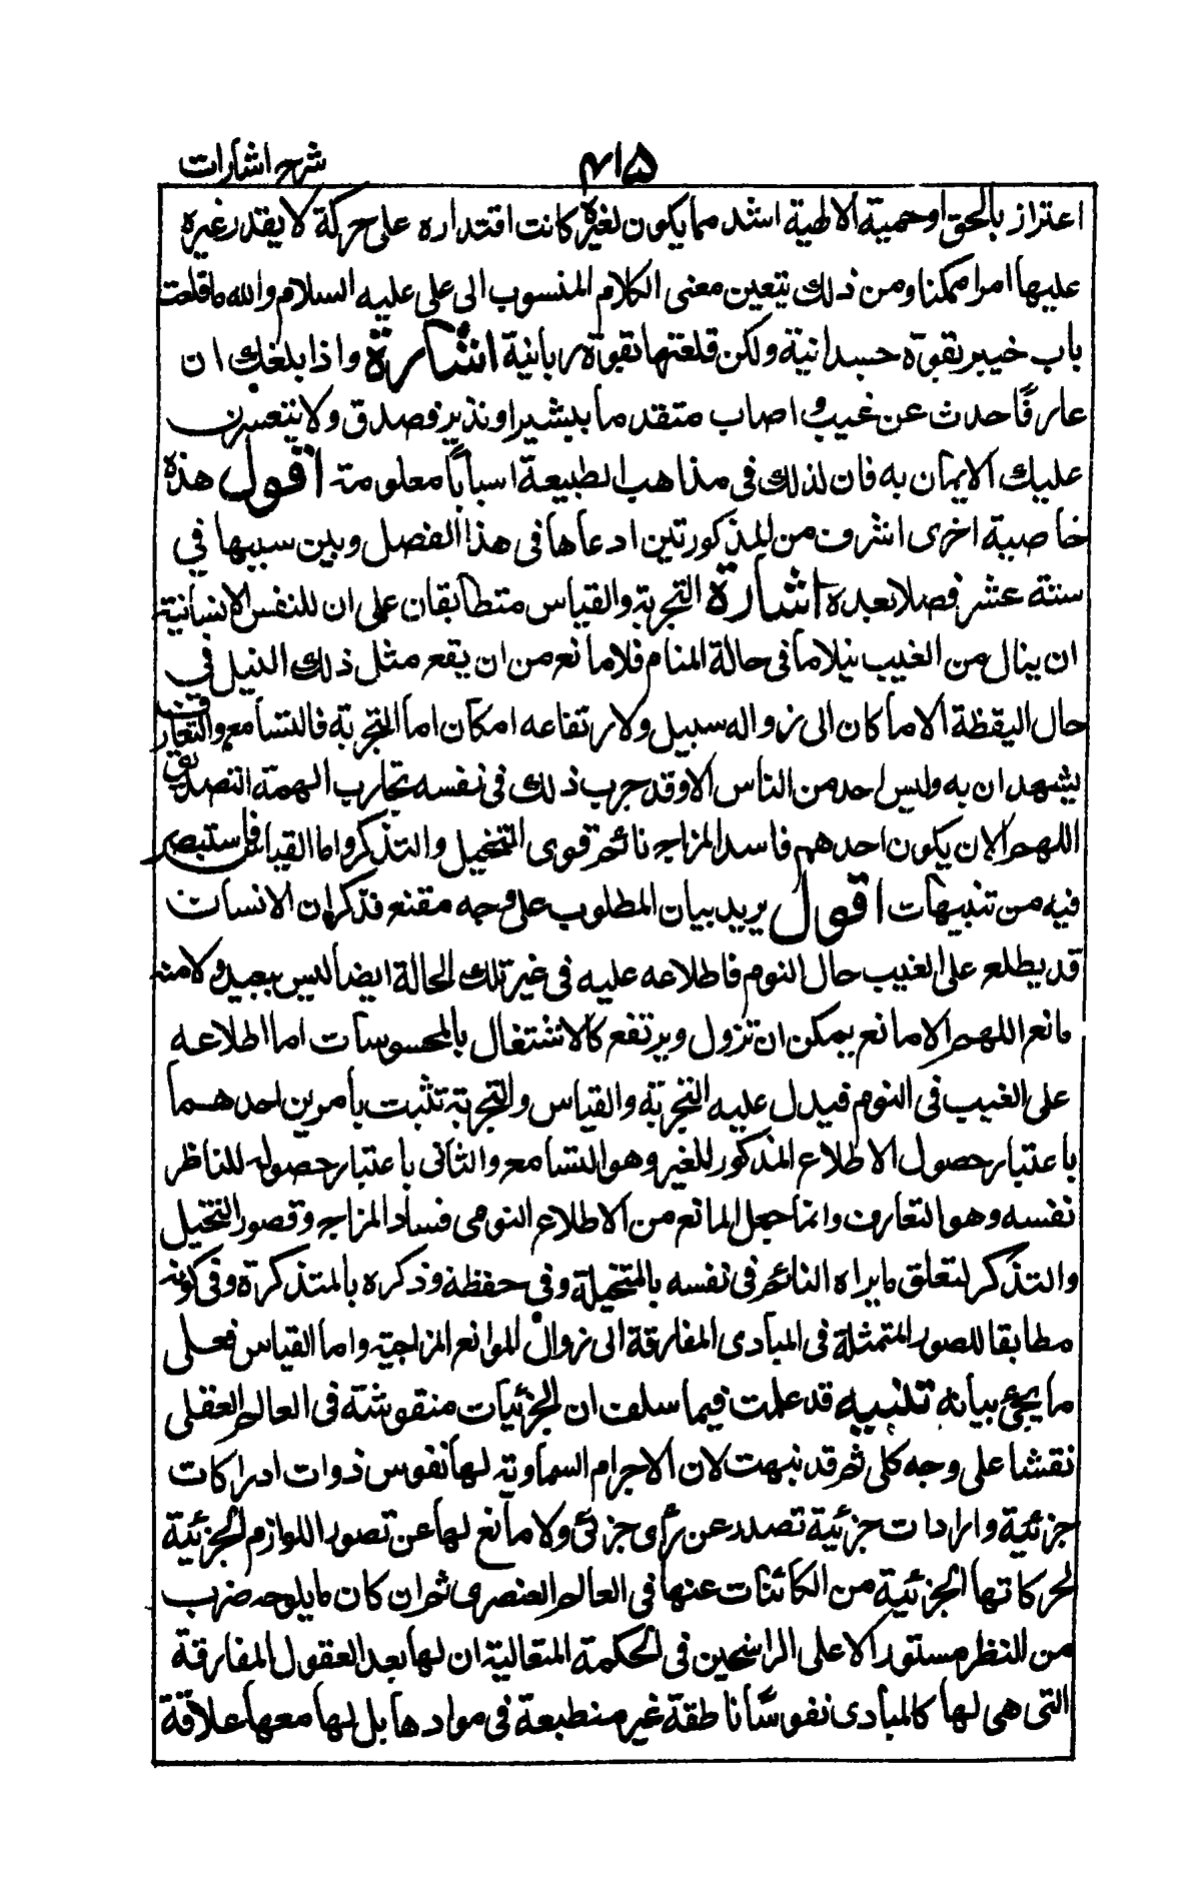 شرح اشارات
۴۱۵
اعتزاز بالحق او حمية الالهية اشد مما يكون لغيره كانت اقتداره على حركة لا يقدر غيره
عليها امرا ممكنا ومن ذلك يتعين معنى الكلام المنسوب الى على عليه السلام والله ما قلعت
باب خيبر بقوة جسدانية ولكن قلعتها بقوة ربانية اشارة واذا بلغك ان
عارفًا حدث عن غيب و اصاب متقدما ببشير او نذير فصدق ولا يتعسرن
عليك الايمان به فان لذلك فى مذاهب الطبيعة اسبابًا معلومة اقول هذه
خاصية اخرى اشرف من المذكورتين ادعاها فى هذا الفصل وبين سببها في
ستة عشر فصلا بعده اشارة التجربة والقياس متطابقان على ان للنفس الانسانية
ان ينال من الغيب نيلا ما فى حالة المنام فلا مانع من ان يقع مثل ذلك النيل في
حال اليقظة الا ما كان الى زواله سبيل ولارتفاعه امكان اما التجربة فالتسامع والتعارف
يشهدان به وليس احد من الناس الا وقد جرب ذلك فى نفسه تجارب الهمته التصديق
اللهم الا ان يكون احدهم فاسد المزاج نائم قوى التخيل والتذكر واما القياس فاستبصر
فيه من تنبيهات اقول يريد بيان المطلوب على وجه مقنع فذكر ان الانسان
قد يطلع على الغيب حال النوم فاطلاعه عليه فى غير تلك الحالة ايضا ليس ببعيد ولا منه
مانع اللهم الا مانع يمكن ان تزول ويرتفع كالاشتغال بالمحسوسات اما اطلاعه
على الغيب فى النوم فيدل عليه التجربة والقياس والتجربة تثبت بأمرين احدهما
باعتبار حصول الاطلاع المذكور للغير وهو التسامع والثانى باعتبار حصوله للناظر
نفسه وهو التعارف وانما جعل المانع من الاطلاع النومى فساد المزاج وقصور التخيل
والتذكر لتعلق ما يراه النائم فى نفسه بالمتخيلة وفى حفظه وذكره بالمتذكرة وفى كونه
مطابقا للصور المتمثلة فى المبادى المفارقة الى زوال الموانع المزاجية واما القياس فعلى
ما يجئ بيانه تنبيه قد علمت فيما سلف ان الجزئيات منقوشة فى العالم العقلى
نقشا على وجه كلى ثم قد نبهت لان الاجرام السماوية لها نفوس ذوات ادراكات
جزئية وارادات جزئية تصدر عن رأى جزئى ولا مانع لها عن تصور اللوازم الجزئية
لحركاتها الجزئية من الكائنات عنها فى العالم العنصرى ثم ان كان ما يلوحه ضرب
من النظر مستورا الا على الراسخين فى الحكمة المتعالية ان لها بعد العقول المفارقة
التى هى لها كالمبادى نفوسًا ناطقة غير منطبعة فى موادها بل لها معها علاقة